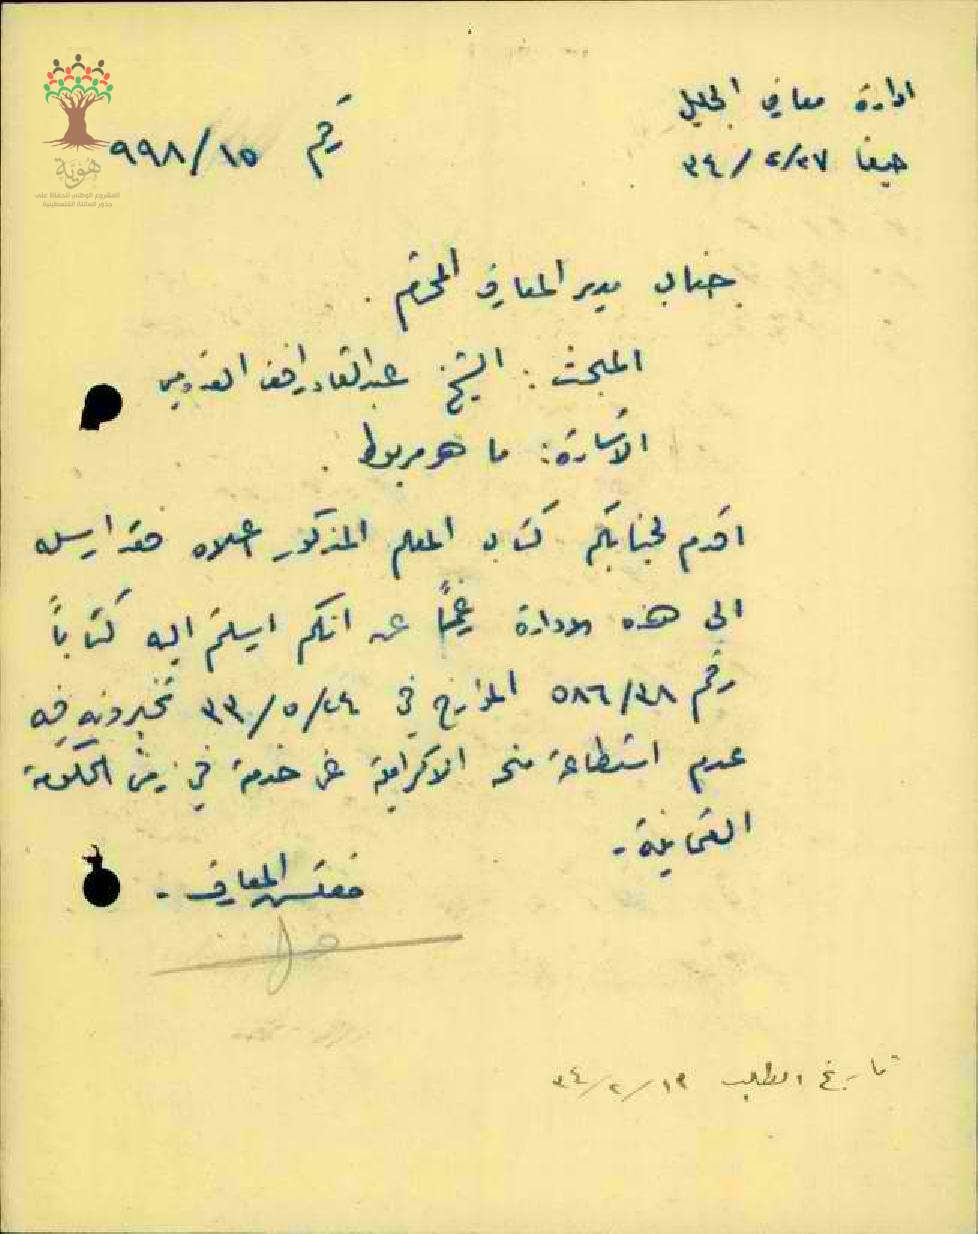 ادارة معارف الجليل
حيفا ٢٧/٢/٣٤
رقم ٩٩٨/١٥
هُويَّة
المشروع الوطني للحفاظ على
جذور العائلة الفلسطينية
جناب مدير المعارف المحترم .
المبحث : الشيخ عبدالقادر افندي
الاشارة : ما هو مربوط .
اقدم لجنابكم كتاب المعلم المذكور اعلاه فقد ارسله
الى هذه الادارة عن انكم ارسلتم اليه كتاباً
رقم ٥٨٦/٣٨ المؤرخ في ٢٤/٥/٣٣ تخبرونه فيه
عدم استطاعة منحه الاكرامية عن خدمة في زمن الحكومة
العثمانية .
مفتش المعارف .
تاريخ الطلب ١٩/٢/٣٤